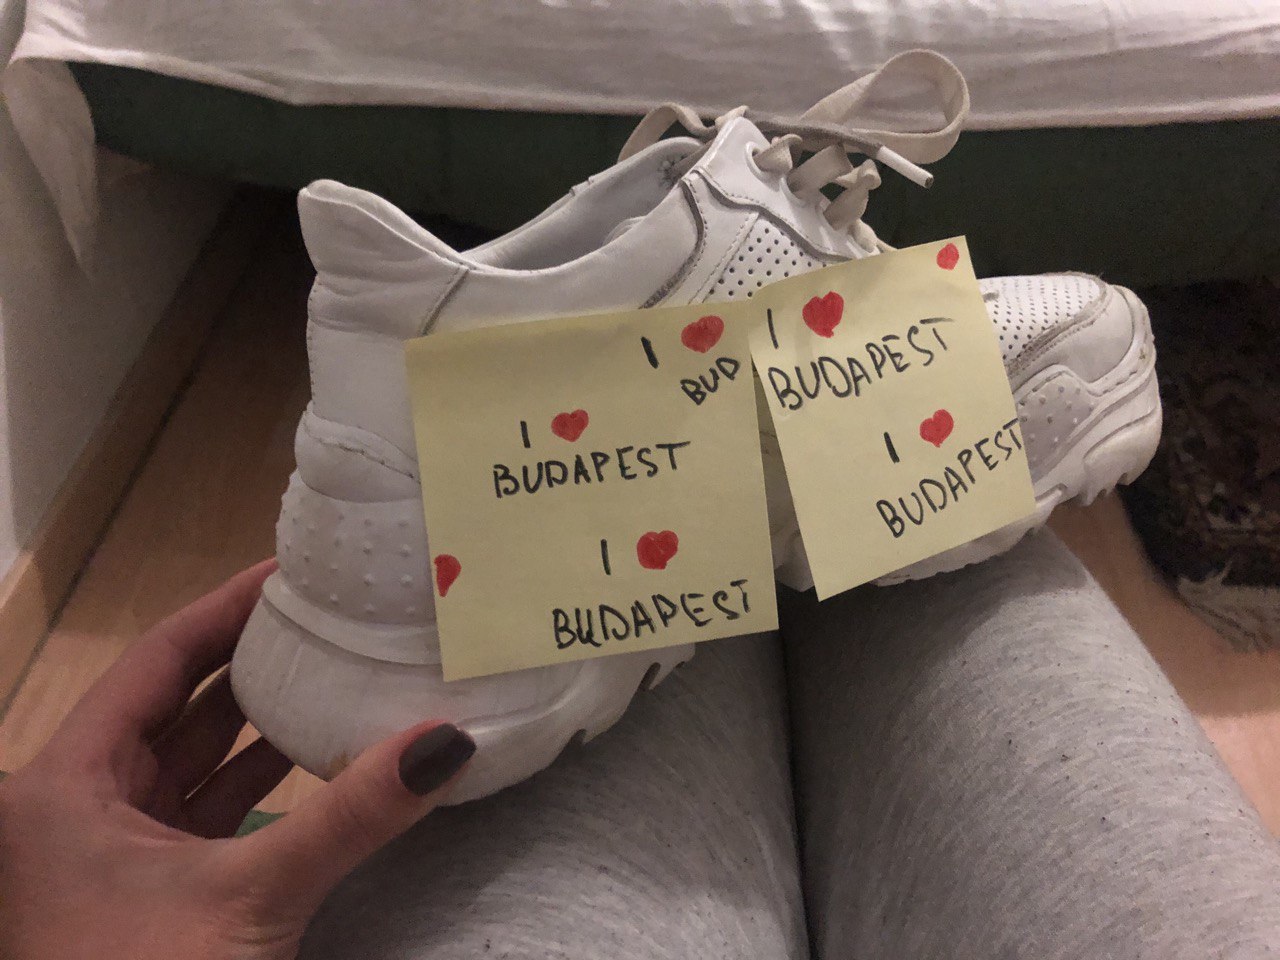 I ❤
BUD
I ❤
BUDAPEST
I ❤
BUDAPEST
I ❤
BUDAPEST
I ❤
BUDAPEST